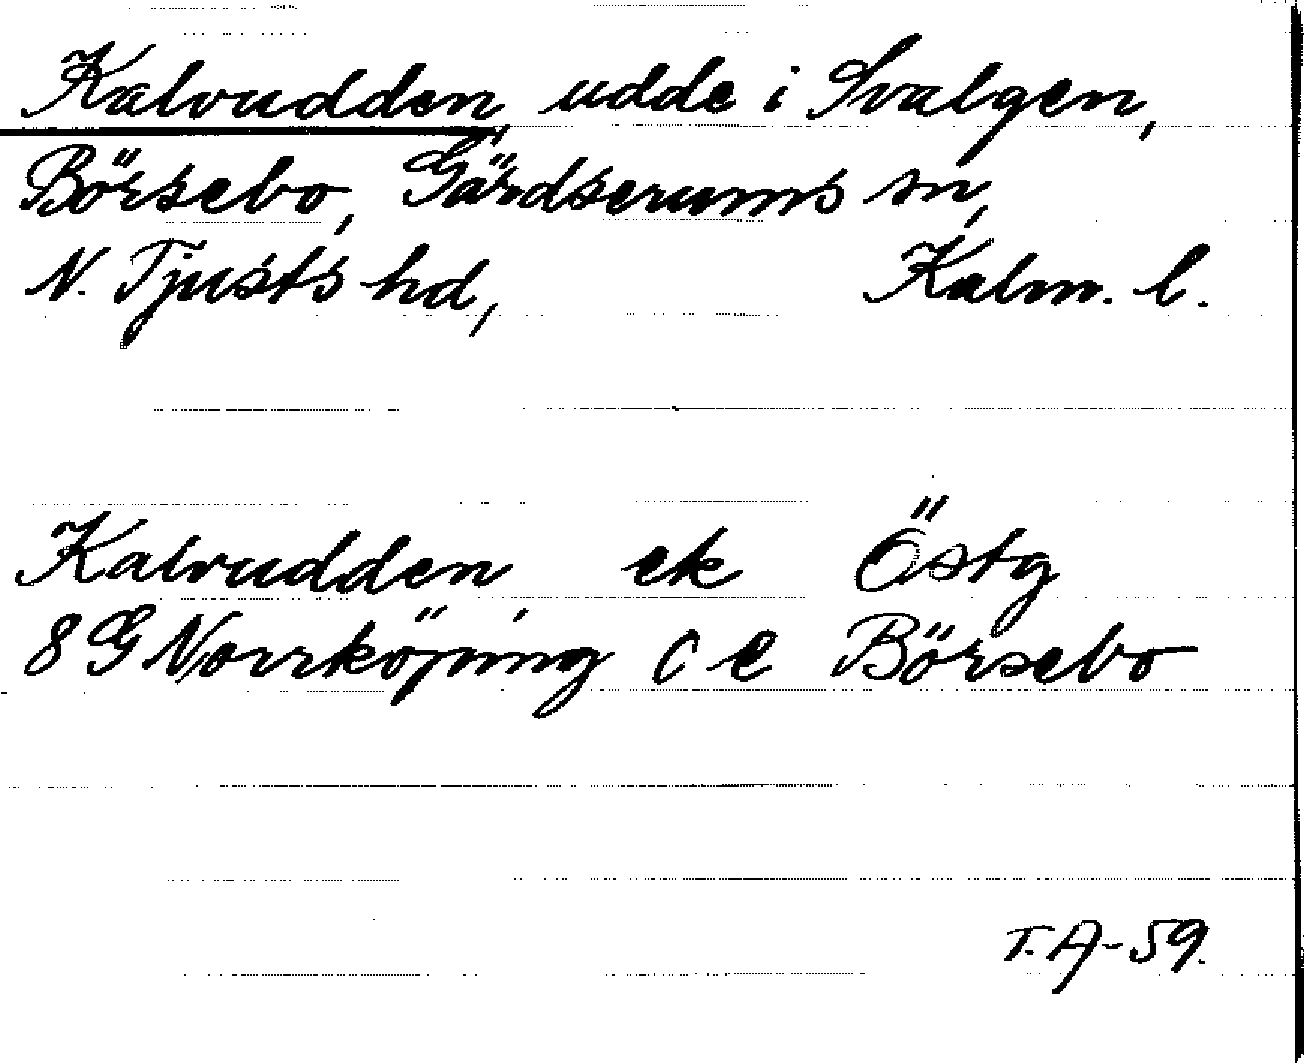 Kalvudden, udde i Svalgen,
Börsebo, Gärdserums sn,
N. Tjusts hd, Kalm. l.
Kalvudden ek Östg
8 G Norrköping c e Börsebo
T. A-59.